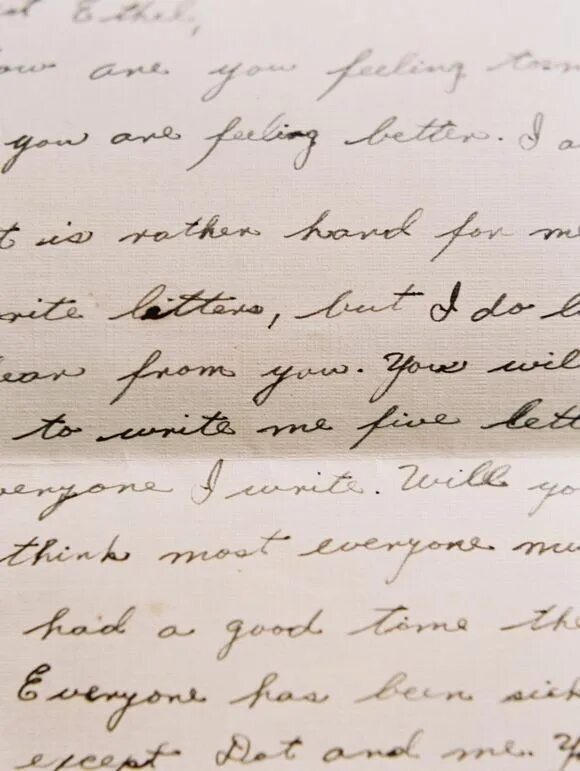 Ethel,
ow are you feeling
you are feeling better. I a
t is rather hard for me
rite letters, but I do l
ear from you. You wil
to write me five lett
veryone I write. Will yo
think most everyone mu
had a good time the
Everyone has been sick
except Dot and me. Y